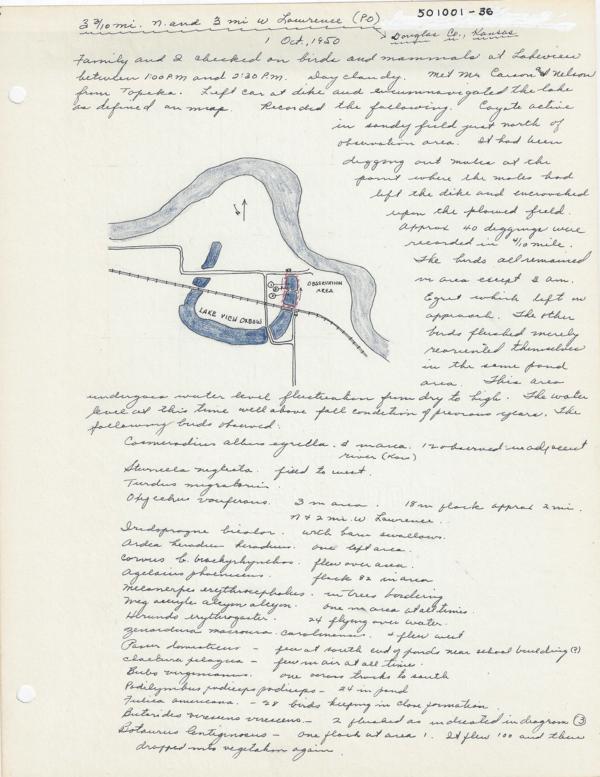 3 3/10 mi. n. and 3 mi w Lawrence (PO)
501001-36
Douglas Co., Kansas
1 Oct, 1950
Family and I checked on birds and mammals at Lakeview
between 1:00 P.M and 2:30 P.M. Day cloudy. Met Mr Carson & Nelson
from Topeka. Left car at dike and circumnavigated the lake
as defined on map. Recorded the following. Coyote active
in sandy field just north of
observation area. It had been
digging out moles at the
point where the moles had
left the dike and encroached
upon the plowed field.
Approx 40 diggings were
recorded in 4/10 mile.
The birds all remained
in area except 2 am.
Egret which left on
approach. The other
birds flushed merely
reoriented themselves
in the same pond
area. This area
OBSERVATION
AREA
LAKE VIEW OXBOW
undergoes water level fluctuation from dry to high. The water
level at this time well above fall condition of previous years. The
following birds observed:
Casmerodius albus egretta. 2 in area. 12 observed in adjacent
river (Kaw)
Sturnella neglecta. field to west.
Turdus migratorius.
Oxyechus vociferous. 3 in area. 18 in flock approx 2 mi.
N & 2 mi. W Lawrence.
Iridoprocne bicolor. with barn swallows.
Ardea herodias herodias. one left area.
Corvus b. brachyrhynchos. flew over area.
Agelaius phoeniceus. flock 82 in area
Melanerpes erythrocephalus. in trees bordering
Megaceryle alcyon alcyon. one in area at all times.
Hirundo erythrogaster. 24 flying over water.
Zenaidura macroura carolinensis. 4 flew west
Passer domesticus - few at south end of ponds near school building (?)
Chaetura pelagica - few in air at all times.
Bubo virginianus. one across tracks to south
Podilymbus podiceps podiceps - 24 in pond
Fulica americana. - 28 birds keeping in close formation.
Butorides virescens virescens. - 2 flushed as indicated in diagram (3)
Botaurus lentiginosus - one flush at area 1. It flew 100 and then
dropped into vegetation again.